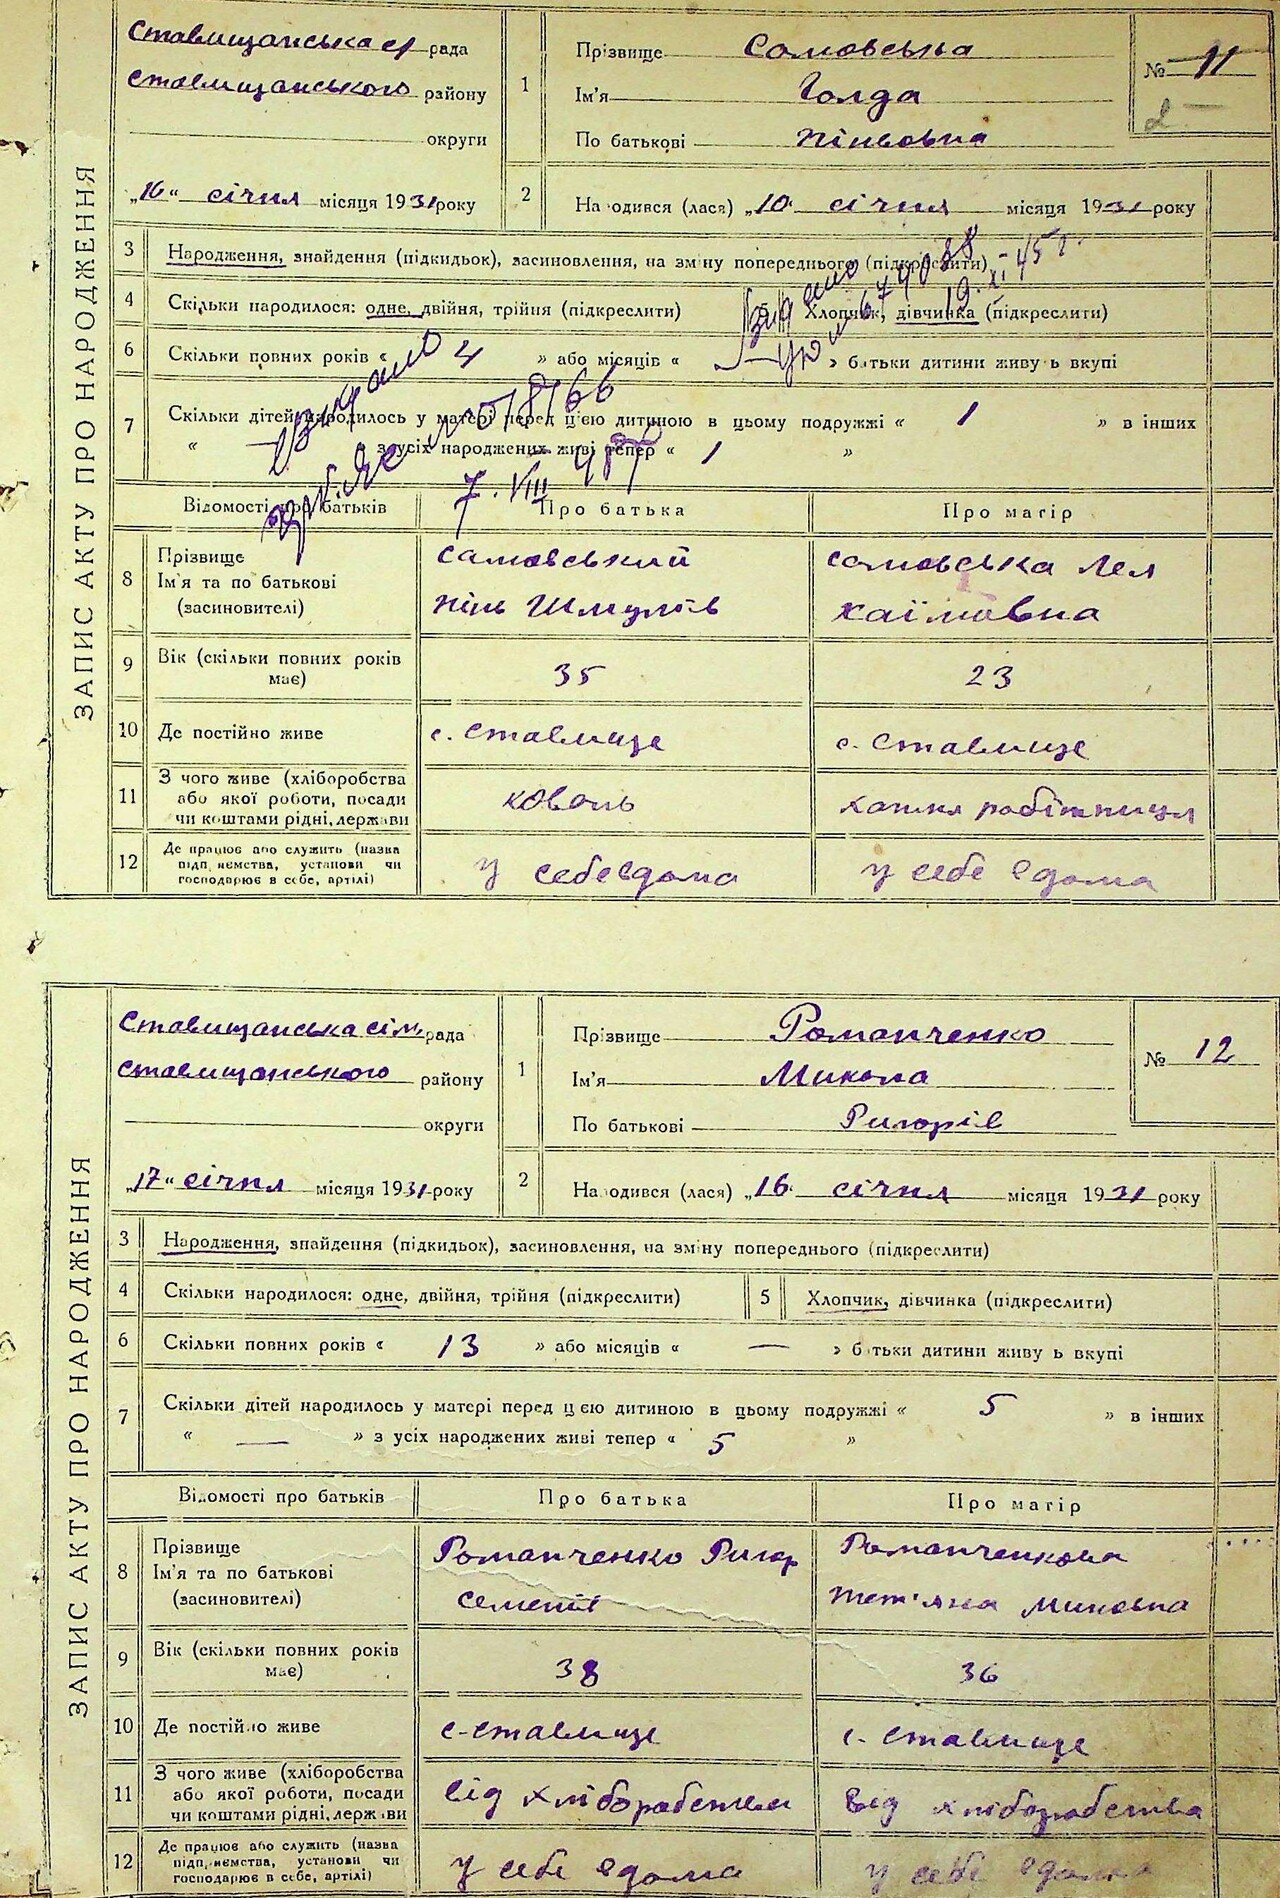 ЗАПИС АКТУ ПРО НАРОДЖЕННЯ
Ставищанська с/ рада
Ставищанського району
округи
„16“ січня місяця 1931 року
1
Прізвище Самовська
Ім'я Голда
По батькові Піньовна
№ 11
2
Народився (лася) „10. січня місяця 1931 року
3 Народження, знайдення (підкидьок), засиновлення, на зміну попереднього (підкреслити)
4 Скільки народилося: одне, двійня, трійня (підкреслити) Хлопчик, дівчинка (підкреслити)
6 Скільки повних років « 4 » або місяців « — » батьки дитини живуть вкупі
7 Скільки дітей народилось у матері перед цією дитиною в цьому подружжі « 1 » в інших
« — » з усіх народжених живі тепер « 1 »
Видано
7. VIII
Відомості про батьків Про батька Про матір
8 Прізвище
Ім'я та по батькові
(засиновителі)
Самовський
Пінь Шмулів
Самовська Лея
Хаїмовна
9 Вік (скільки повних років має) 35 23
10 Де постійно живе с. Ставище с. Ставище
11 З чого живе (хліборобства
або якої роботи, посади
чи коштами рідні, держави
коваль
хатня робітниця
12 Де працює або служить (назва
підприємства, установи чи
господарює в себе, артілі)
у себе вдома
у себе вдома
ЗАПИС АКТУ ПРО НАРОДЖЕННЯ
Ставищанська сіл. рада
Ставищанського району
округи
„17“ січня місяця 1931 року
1
Прізвище Романченко
Ім'я Микола
По батькові Ригорів
№ 12
2
Народився (лася) „16. січня місяця 1931 року
3 Народження, знайдення (підкидьок), засиновлення, на зміну попереднього (підкреслити)
4 Скільки народилося: одне, двійня, трійня (підкреслити) 5 Хлопчик, дівчинка (підкреслити)
6 Скільки повних років « 13 » або місяців « — » батьки дитини живуть вкупі
7 Скільки дітей народилось у матері перед цією дитиною в цьому подружжі « 5 » в інших
« — » з усіх народжених живі тепер « 5 »
Відомості про батьків Про батька Про матір
8 Прізвище
Ім'я та по батькові
(засиновителі)
Романченко Ригор
Семенів
Романченкова
Тет'яна Миновна
9 Вік (скільки повних років має) 38 36
10 Де постійно живе с-Ставище с. Ставище
11 З чого живе (хліборобства
або якої роботи, посади
чи коштами рідні, держави
від хліборобства
від хліборобства
12 Де працює або служить (назва
підприємства, установи чи
господарює в себе, артілі)
у себе вдома
у себе вдома